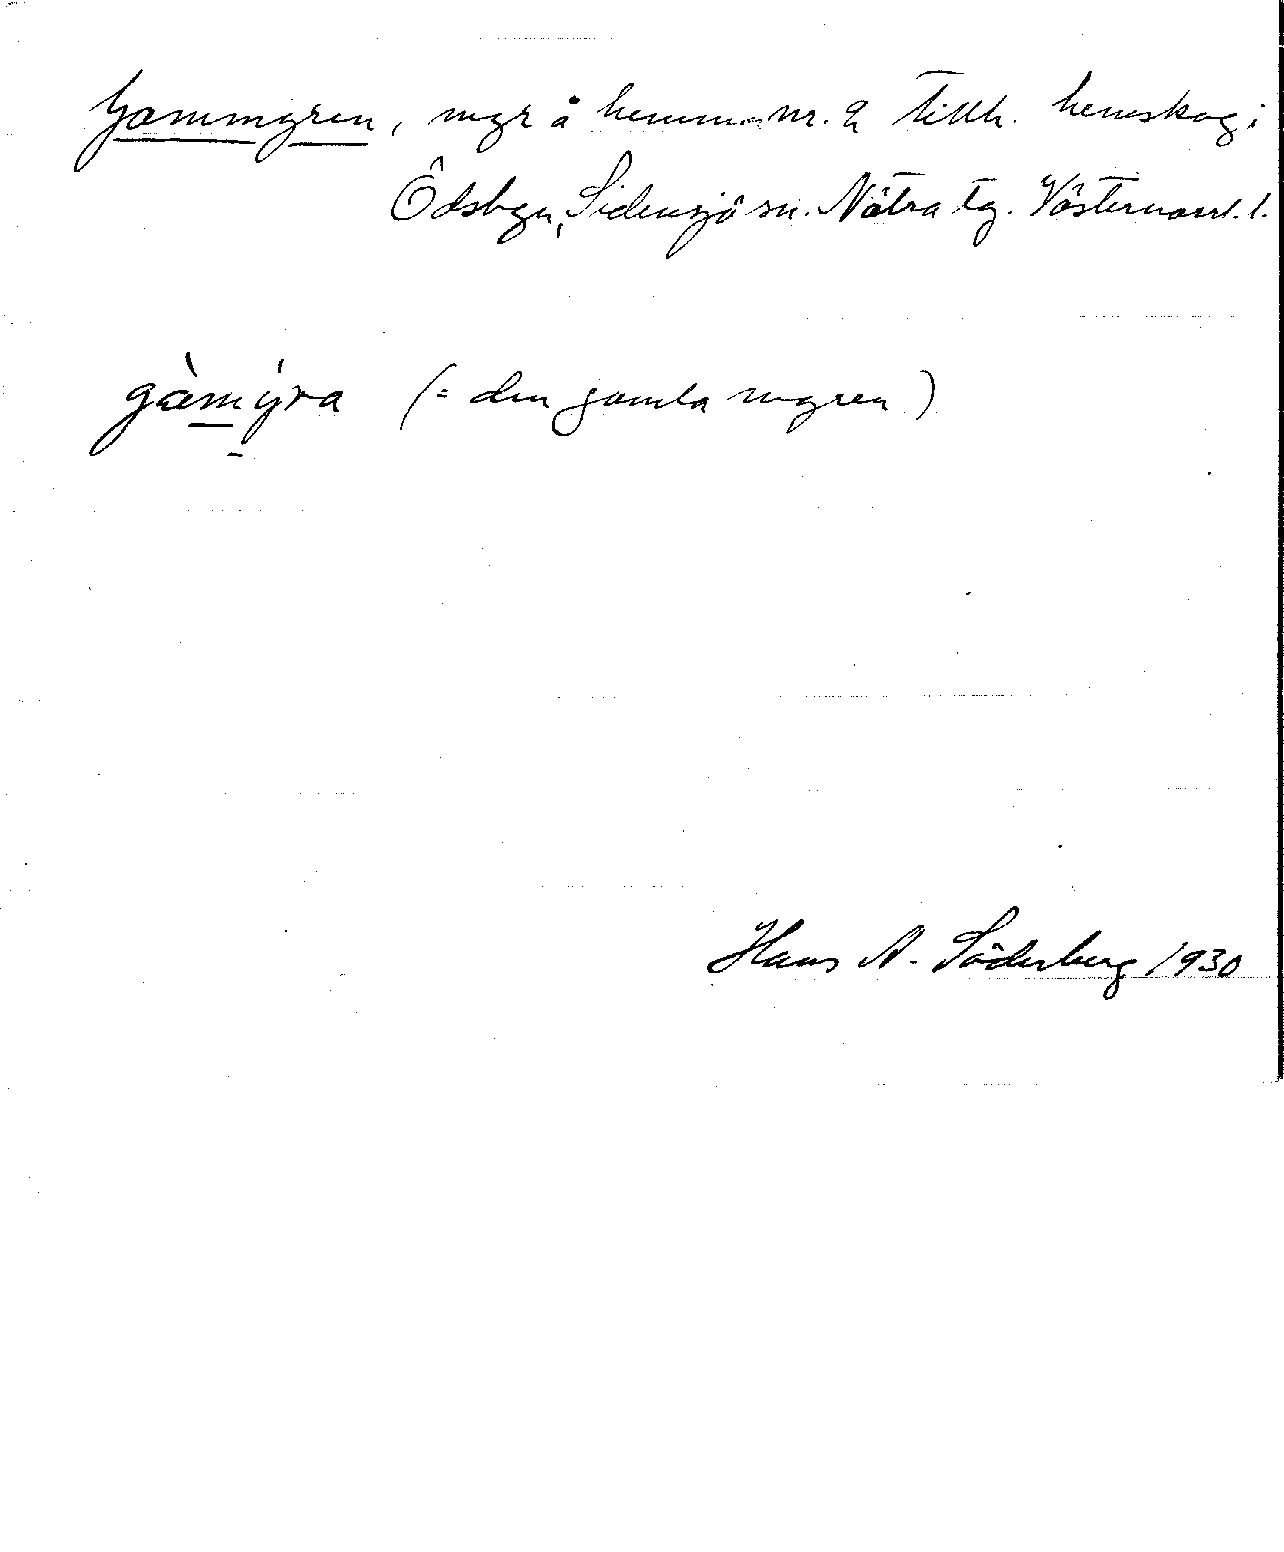 Gammyren, myr å hemm. nr. 2 tillh. hemskog i
Ödsbyn, Sidensjö sn. Nätra tg. Västernorrl. l.
gàmýra (= den gamla myren)
Hans A. Söderberg 1930